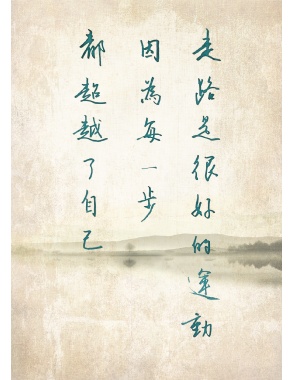 走路是很好的運動
因為每一步
都超越了自己